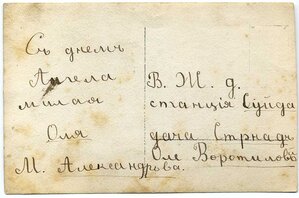 Съ днемъ
Ангела
милая
Оля
М. Александрова.
В. Ж. д.
станція Суйда
дача Стрнадъ
Оле Воротиловой